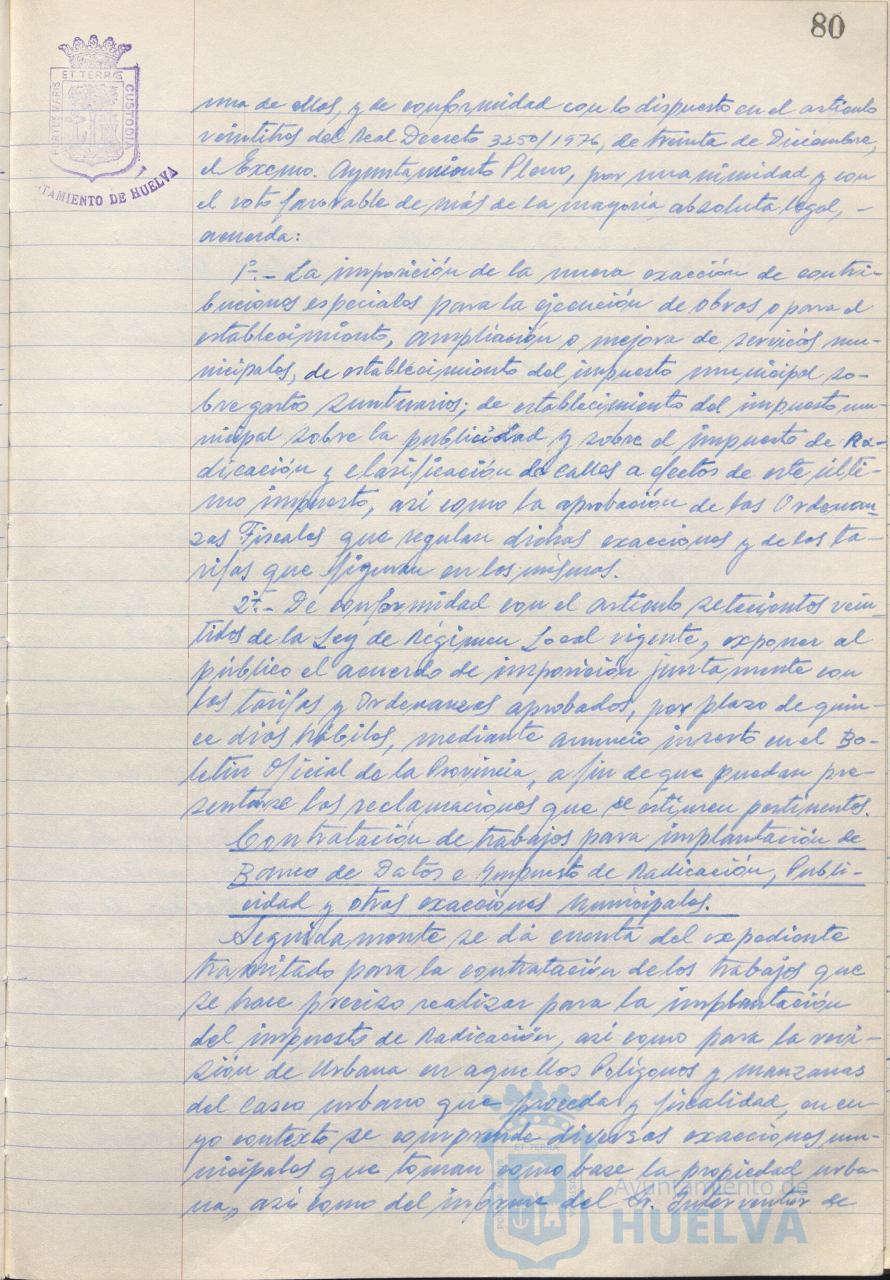 80
ET TERRÆ
PORTUS MARIS
CUSTODIA
NTAMIENTO DE HUELVA
una de ellas, y de conformidad con lo dispuesto en el artículo
veintitres del Real Decreto 3250/1976, de treinta de Diciembre,
el Excmo. Ayuntamiento Pleno, por unanimidad y con
el voto favorable de más de la mayoría absoluta legal, -
acuerda:
1º.- La imposición de la nueva exacción de contri-
buciones especiales para la ejecución de obras o para el
establecimiento, ampliación o mejora de servicios mu-
nicipales, de establecimiento del impuesto municipal so-
bre gastos suntuarios; de establecimiento del impuesto mu-
nicipal sobre la publicidad y sobre el impuesto de Ra-
dicación y clasificación de calles a efectos de este últi-
mo impuesto, así como la aprobación de las Ordenan-
zas Fiscales que regulan dichas exacciones y de las ta-
rifas que figuran en los mismos.
2º.- De conformidad con el artículo setecientos vein-
tidos de la Ley de Régimen Local vigente, exponer al
público el acuerdo de imposición juntamente con
las tarifas y Ordenanzas aprobadas, por plazo de quin-
ce dias hábiles, mediante anuncio inserto en el Bo-
letín Oficial de la Provincia, a fin de que puedan pre-
sentarse las reclamaciones que se estimen pertinentes.
Contratación de trabajos para implantación de
Banco de Datos e Impuesto de Radicación, Publi-
cidad y otras exacciones Municipales.
Seguidamente se dá cuenta del expediente
tramitado para la contratación de los trabajos que
se hace preciso realizar para la implantación
del impuesto de Radicación, así como para la revi-
sión de Urbana en aquellos Polígonos y manzanas
del casco urbano que proceda y fiscalidad, en cu-
yo contexto se comprende diversas exacciones mu-
nicipales que toman como base la propiedad urba-
na, así como del informe del Sr. Interventor de
ET TERRÆ
Ayuntamiento de
HUELVA